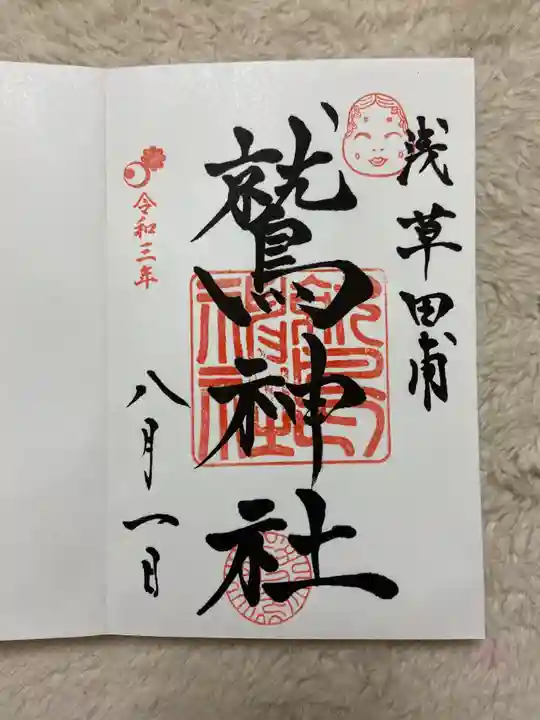 浅草田甫
鷲神社
令和三年
八月一日